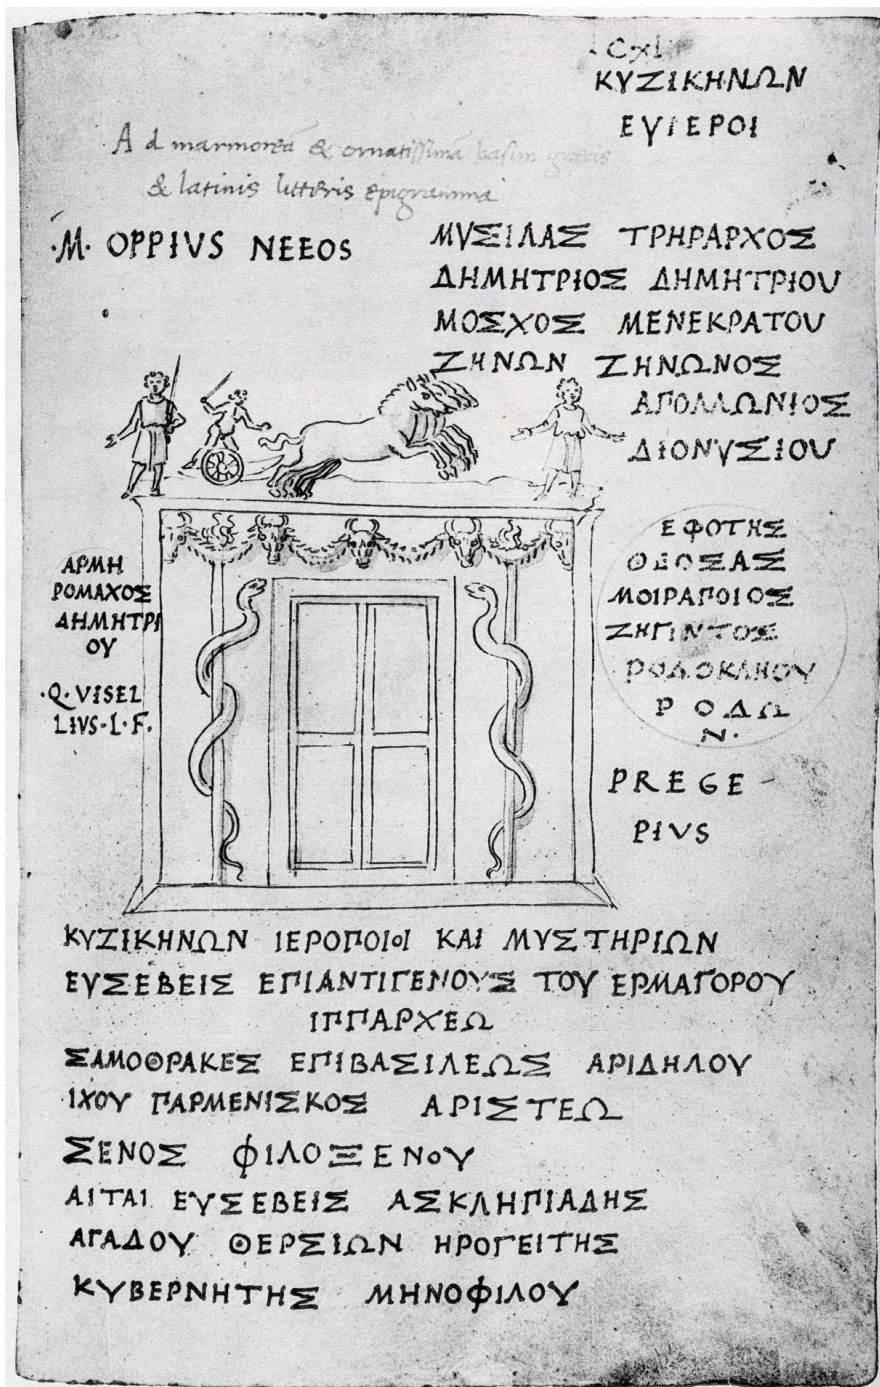 Cxl
ΚΥΖΙΚΗΝΩΝ
ΕΥΙΕΡΟΙ
Ad marmoreā & ornatissimā basim grecis
& latinis litteris epigramma
·M· OPPIVS NEEOS
ΜΥΣΙΛΑΣ ΤΡΗΡΑΡΧΟΣ
ΔΗΜΗΤΡΙΟΣ ΔΗΜΗΤΡΙΟΥ
ΜΟΣΧΟΣ ΜΕΝΕΚΡΑΤΟΥ
ΖΗΝΩΝ ΖΗΝΩΝΟΣ
ΑΠΟΛΛΩΝΙΟΣ
ΔΙΟΝΥΣΙΟΥ
ΑΡΜΗ
ΡΟΜΑΧΟΣ
ΔΗΜΗΤΡΙ
ΟΥ
·Q·VISEL
LIVS·L·F·
ΕΦΟΤΗΣ
ΘΕΟΣΑΣ
ΜΟΙΡΑΠΟΙΟΣ
ΡΟΔΟΚΛΗΟΥ
ΡΟΔΩ
Ν·
PREGE
PIVS
ΚΥΖΙΚΗΝΩΝ ΙΕΡΟΠΟΙΟΙ ΚΑΙ ΜΥΣΤΗΡΙΩΝ
ΕΥΣΕΒΕΙΣ ΕΠΙΑΝΤΙΓΕΝΟΥΣ ΤΟΥ ΕΡΜΑΓΟΡΟΥ
ΙΠΠΑΡΧΕΩ
ΣΑΜΟΘΡΑΚΕΣ ΕΠΙΒΑΣΙΛΕΩΣ ΑΡΙΔΗΛΟΥ
ΙΧΟΥ ΠΑΡΜΕΝΙΣΚΟΣ ΑΡΙΣΤΕΩ
ΣΕΝΟΣ ΦΙΛΟΞΕΝΟΥ
ΑΙΤΑΙ ΕΥΣΕΒΕΙΣ ΑΣΚΛΗΠΙΑΔΗΣ
ΑΓΑΔΟΥ ΘΕΡΣΙΩΝ ΗΡΟΓΕΙΤΗΣ
ΚΥΒΕΡΝΗΤΗΣ ΜΗΝΟΦΙΛΟΥ